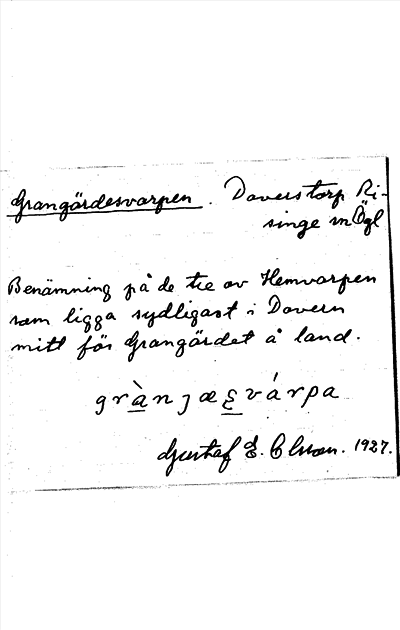 Grangärdesvarpen. Daverstorp Ri-
singe sn Ögl
Benämning på de tre av Hemvarpen
som ligga sydligast i Dovern
mitt för Grangärdet å land.
grànjæsvárpa
Gustaf E. Olsson. 1927.